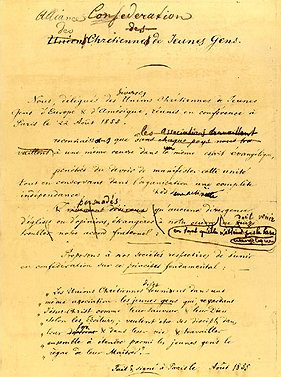 Alliance Confédération
des des
Unions Chrétiennes de Jeunes Gens.
diverses
Nous, délégués des Unions Chrétiennes de Jeunes
Gens d'Europe & d'Amérique, réunis en conférence à
Paris le 22 Août 1855.
les associations travaillent
reconnaissant que dans chaque pays nous
vaillent à une même œuvre dans le même esprit évangélique,
pénétrés du devoir de manifester cette unité
tout en conservant dans l'organisation une complète
indépendance
persuadés
qu'aucune
d'église ou d'opinions, étrangères à notre
troubler notre accord fraternel
Proposons à nos sociétés respectives de s'unir
en confédération sur ce principe fondamental :
Les Unions Chrétiennes réunissent dans une
même association les jeunes gens qui, regardant
Jésus-Christ comme leur Sauveur & leur Dieu
selon les Écritures, veulent être ses disciples en
leur foi & dans leur vie, & travailler
ensemble à étendre parmi les jeunes gens le
règne de leur Maître.
Fait & signé à Paris le Août 1855